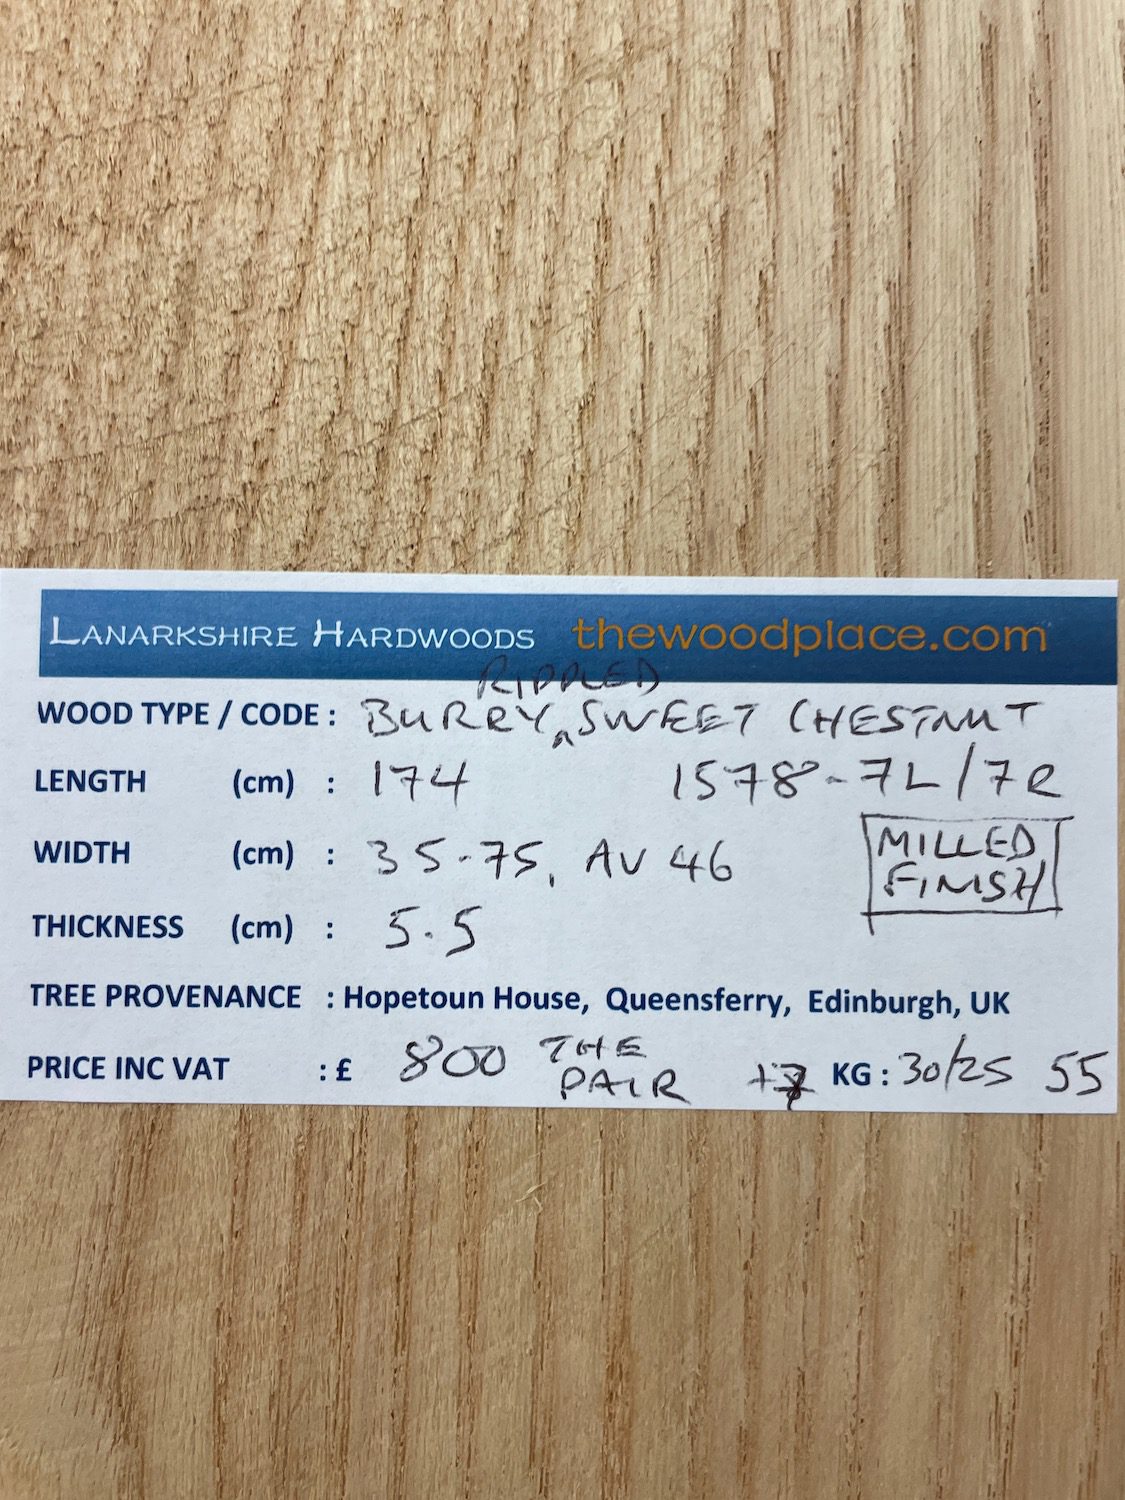 LANARKSHIRE HARDWOODS thewoodplace.com
RIPPLED
WOOD TYPE / CODE : BURRY ^ SWEET CHESTNUT
LENGTH (cm) : 174 1578-7L/7R
WIDTH (cm) : 35-75, AV 46
MILLED
FINISH
THICKNESS (cm) : 5.5
TREE PROVENANCE : Hopetoun House, Queensferry, Edinburgh, UK
PRICE INC VAT : £ 800 THE PAIR KG : 30/25 55